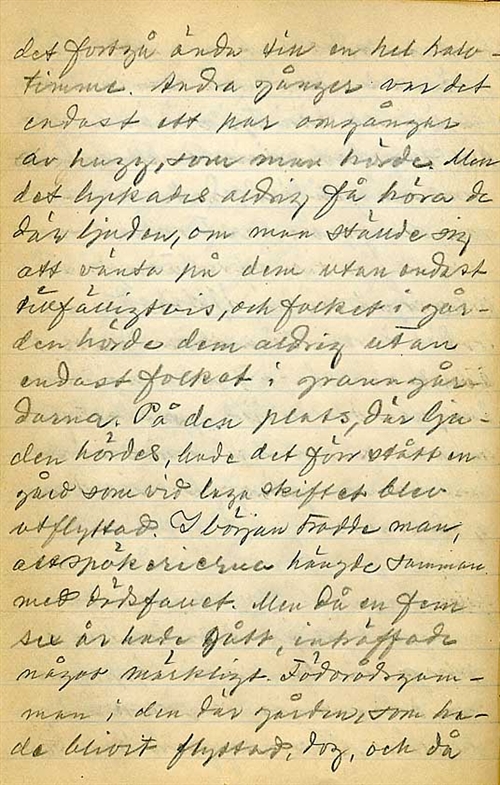 det fortgå ända till en hel halv-
timme. Andra gånger var det
endast ett par omgångar
av hugg, som man hörde. Men
det lyckades aldrig få höra de
där ljuden, om man ställde sig
att vänta på dem utan endast
tillfälligtvis, och folket i går-
den hörde dem aldrig utan
endast folket i granngår-
darna. På den plats, där lju-
den hördes, hade det förr stått en
gård som vid laga skiftet blev
utflyttad. I början trodde man,
att spökerierna hängde samman
med dödsfallet. Men då en fem
sex år hade gått, inträffade
något märkligt. Födorådsgum-
man i den där gården, som ha-
de blivit flyttad, dog, och då